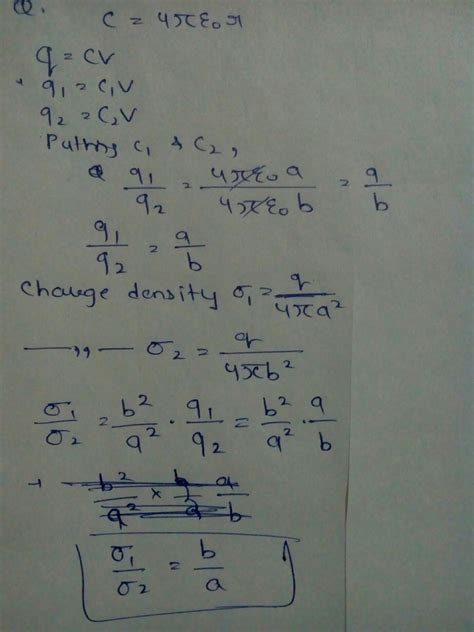 Q.
C = 4πε₀r
q = CV
q₁ = C₁V
q₂ = C₂V
Putting C₁ & C₂,
q₁/q₂ = 4πε₀a/4πε₀b = a/b
q₁/q₂ = a/b
Charge density σ₁ = q/4πa²
—— ,, — σ₂ = q/4πb²
σ₁/σ₂ = b²/a² · q₁/q₂ = b²/a² · a/b
σ₁/σ₂ = b/a